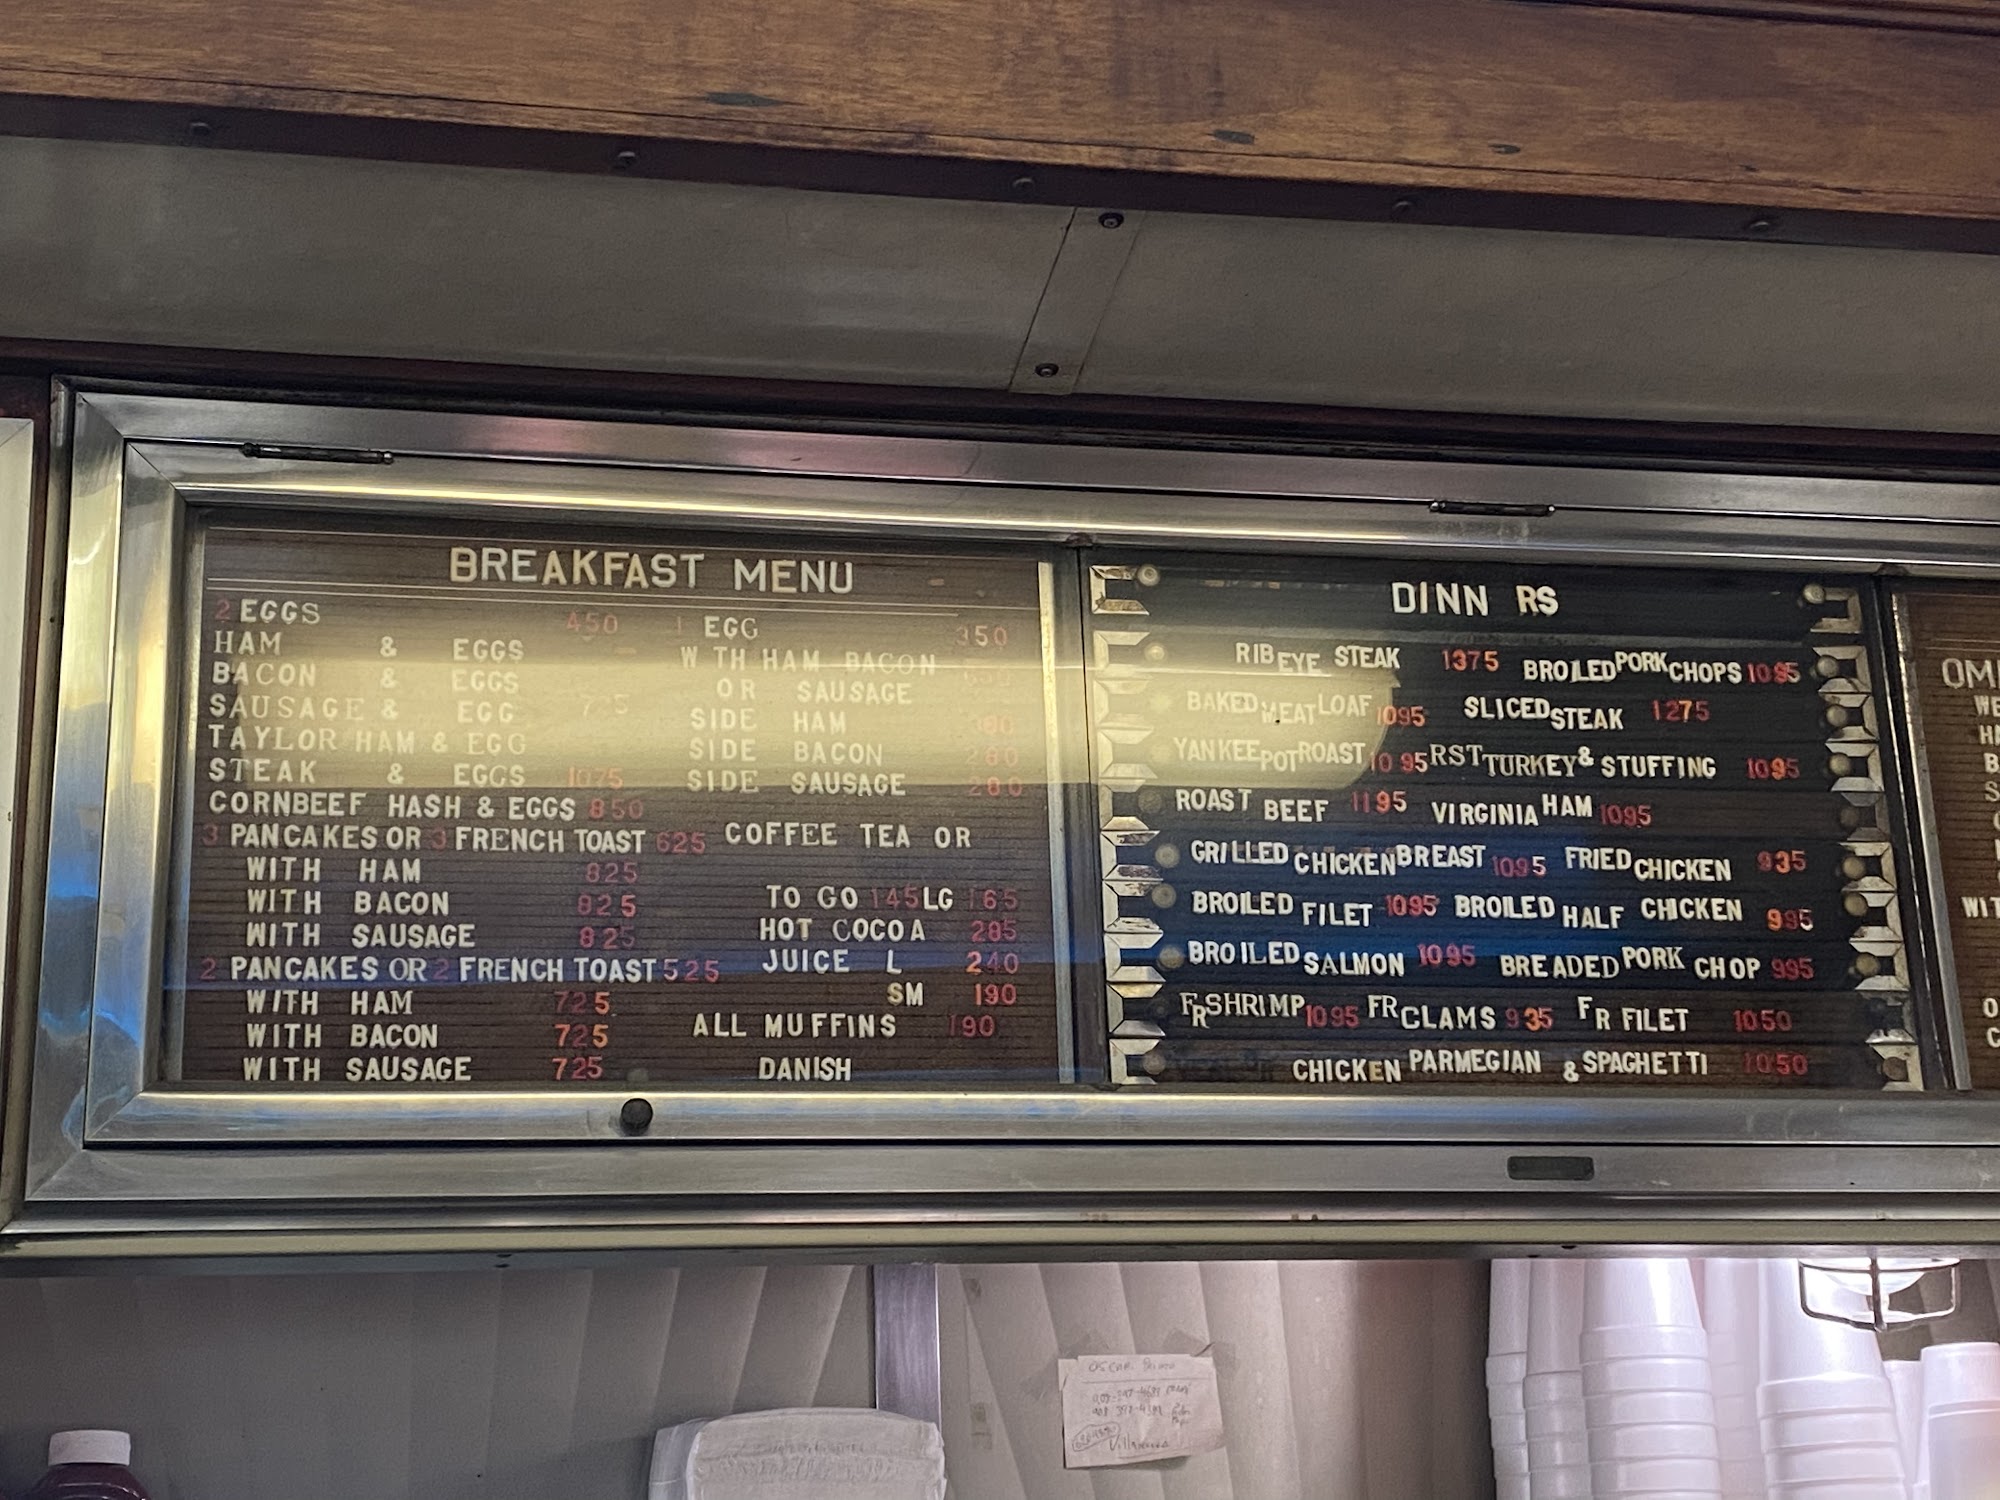 BREAKFAST MENU
2 EGGS 450
HAM & EGGS
BACON & EGGS
SAUSAGE & EGG
TAYLOR HAM & EGG
STEAK & EGGS 1075
CORNBEEF HASH & EGGS 850
3 PANCAKES OR 3 FRENCH TOAST 625
WITH HAM 825
WITH BACON 825
WITH SAUSAGE 825
2 PANCAKES OR 2 FRENCH TOAST 525
WITH HAM 725
WITH BACON 725
WITH SAUSAGE 725
1 EGG 350
W TH HAM BACON
OR SAUSAGE
SIDE HAM
SIDE BACON 280
SIDE SAUSAGE 280
COFFEE TEA OR
TO GO 145 LG 165
HOT COCOA 285
JUICE L 240
SM 190
ALL MUFFINS 190
DANISH
DINN RS
RIB EYE STEAK 1375 BROILED PORK CHOPS 1095
BAKED MEAT LOAF 1095 SLICED STEAK 1275
YANKEE POT ROAST 1095 RST TURKEY & STUFFING 1095
ROAST BEEF 1195 VIRGINIA HAM 1095
GRILLED CHICKEN BREAST 1095 FRIED CHICKEN 935
BROILED FILET 1095 BROILED HALF CHICKEN 995
BROILED SALMON 1095 BREADED PORK CHOP 995
FR SHRIMP 1095 FR CLAMS 935 FR FILET 1050
CHICKEN PARMEGIAN & SPAGHETTI 1050
WIT
OSCAR